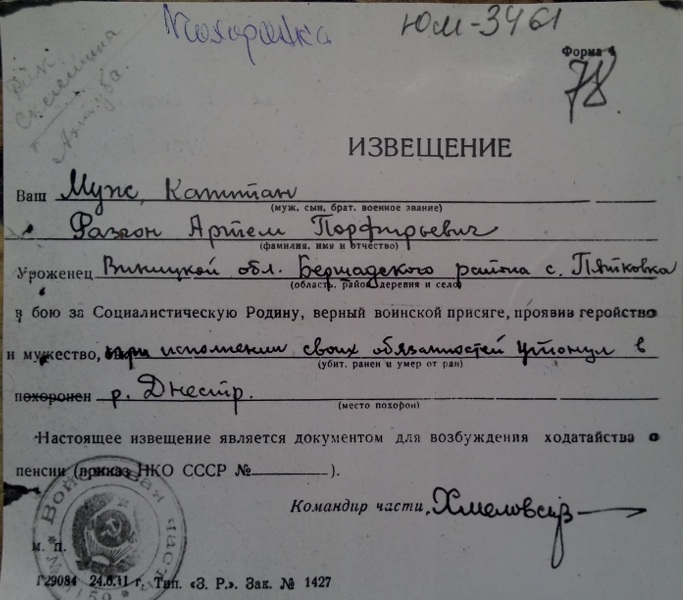 Похоронка
ЮМ-3461
Форма 4
78.
ИЗВЕЩЕНИЕ
Ваш Муж, Капитан
(муж, сын, брат, военное звание)
Разгон Артем Порфирьевич
(фамилия, имя и отчество)
Уроженец Виницкой обл. Бершадского района с. Пятковка
(область, район, деревня и село)
в бою за Социалистическую Родину, верный воинской присяге, проявив геройство
и мужество, при исполнении своих обязанностей утонул в
(убит, ранен и умер от ран)
похоронен р. Днестр.
(место похорон)
Настоящее извещение является документом для возбуждения ходатайства о
пенсии (приказ НКО СССР № ).
Командир части,
Войсковая часть
м. п.
Г29084 24.6.41 г. Тип. «З. Р.». Зак. № 1427